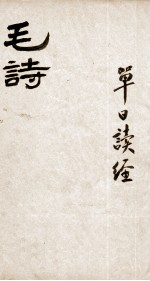 毛詩
單日讀經